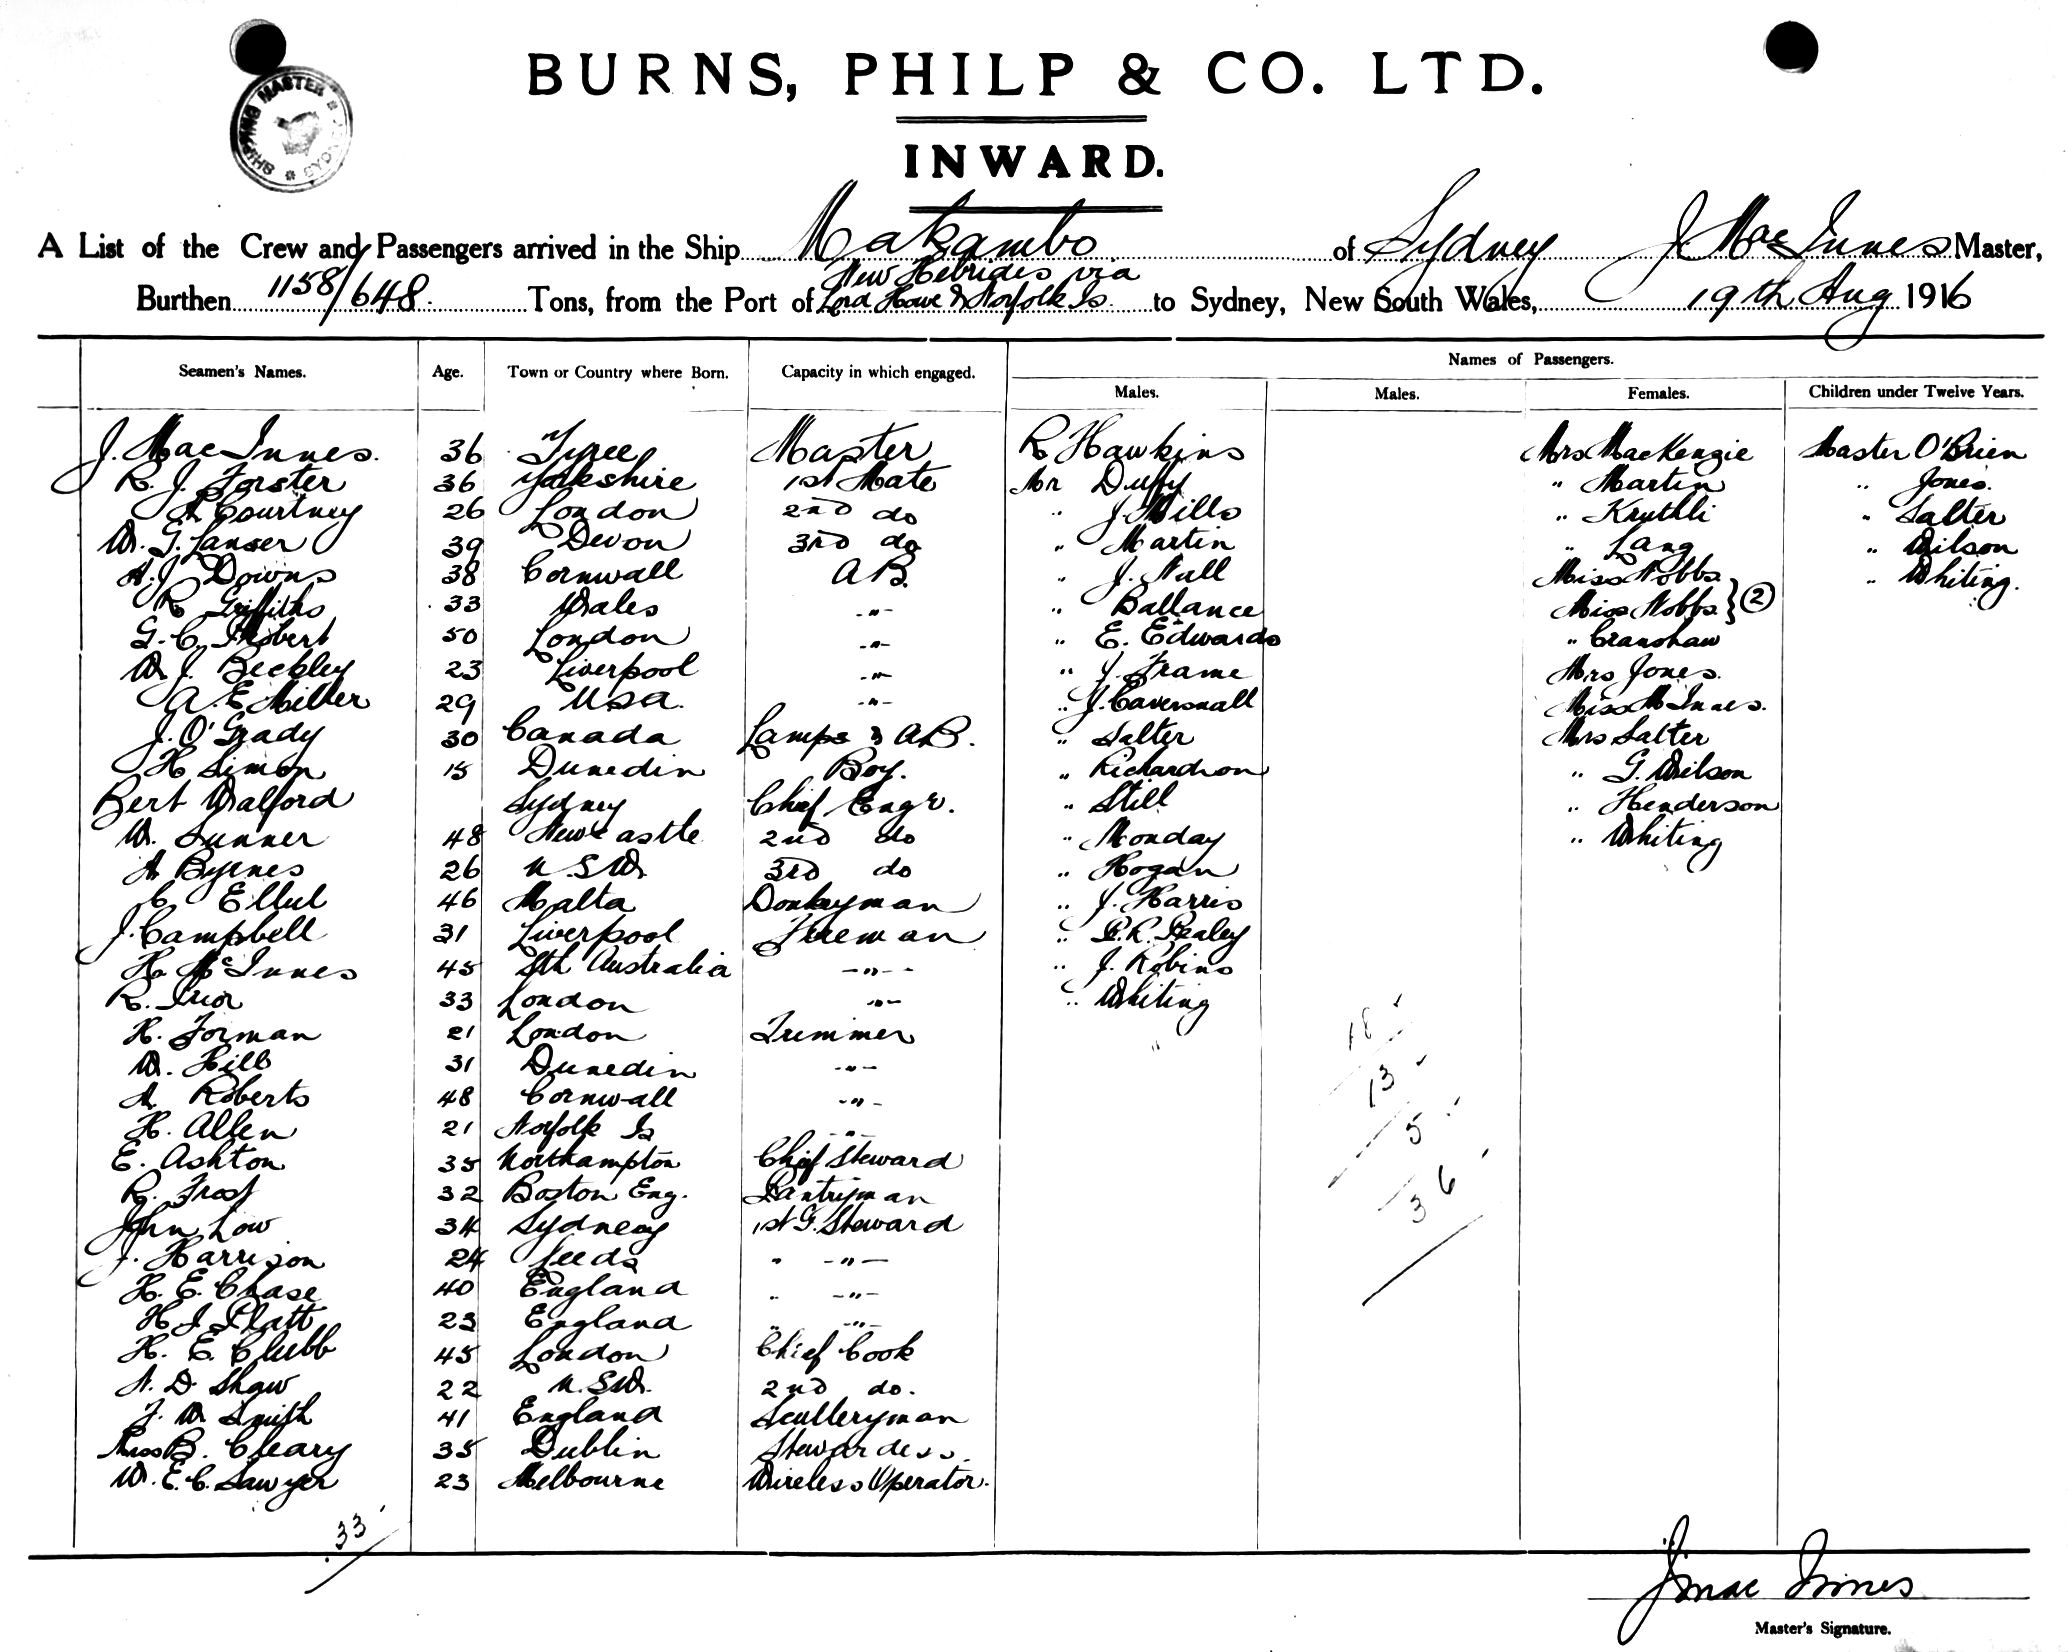 BURNS, PHILP & CO. LTD.
INWARD.
SHIPPING MASTER * SYDNEY *
A List of the Crew and Passengers arrived in the Ship Makambo of Sydney J. MacInnes Master,
New Hebrides via
Burthen 1158/648 Tons, from the Port of Lord Howe & Norfolk Is. to Sydney, New South Wales, 19th Aug 1916
Names of Passengers.
Seamen's Names. Age. Town or Country where Born. Capacity in which engaged. Males. Males. Females. Children under Twelve Years.
J. MacInnes. 36 Tyree Master R Hawkins Mrs MacKenzie Master O'Brien
R. J. Forster 36 Yorkshire 1st Mate Mr Duffy " Martin " Jones.
A Courtney 26 London 2nd do " J. Mills " Kruthli " Salter
W. G. Lanser 39 Devon 3rd do " Martin " Lang " Wilson
A. J. Downs 38 Cornwall A B. " J. Nall Miss Nobbs " Whiting.
R Griffiths 33 Wales " " Ballance Miss Nobbs } 2
G. C. 50 London " " E. Edwards " Cranshaw
W J. Beckley 23 Liverpool " " J. Frame Mrs Jones.
A. E Miller 29 USA. " " J. Caversnall Miss McInnes.
J. O'Grady 30 Canada Lamps & AB. " Salter Mrs Salter
H Simon 15 Dunedin Boy. " Richardson " G. Wilson
Bert Walford Sydney Chief Engr. " Still " Henderson
W. Sunner 48 Newcastle 2nd do " Monday " Whiting
A Byrnes 26 N.S.W. 3rd do " Hogan
C Ellul 46 Malta Donkeyman " J. Harris
J. Campbell 31 Liverpool Fireman " P. R. Pealey
H. McInnes 45 Sth Australia " " J. Robins
R. Prior 33 London " " Whiting
H. Forman 21 London Trimmer
W. Hill 31 Dunedin "
A. Roberts 48 Cornwall "
H. Allen 21 Norfolk Is "
E. Ashton 35 Northampton Chief Steward
R. Frost 32 Boston Eng. Pantryman
John Low 34 Sydney 1st G. Steward
J. Harrison 24 Leeds " "
H. E. Chase 40 England " "
H J. Platt 23 England " "
H. E. Clubb 45 London Chief Cook
A. D. Shaw 22 N.S.W. 2nd do.
F. W Smith 41 England Sculleryman
Miss B. Cleary 35 Dublin Stewardess.
W. E. C. Sawyer 23 Melbourne Wireless Operator.
18
13
5
36
33
J MacInnes
Master's Signature.